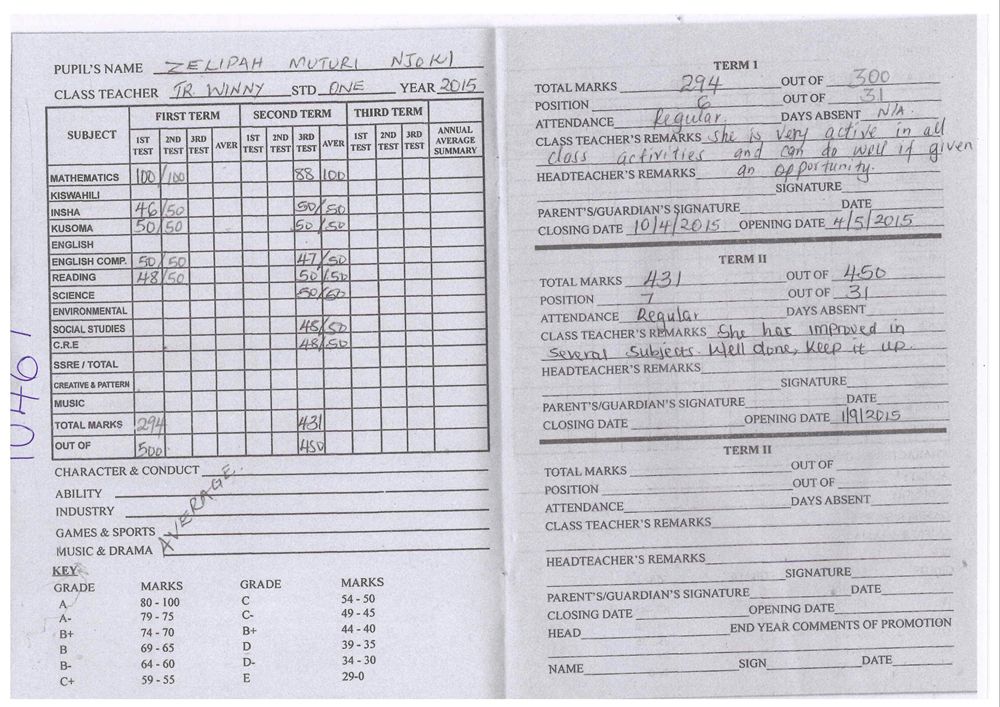 PUPIL'S NAME ZELIPAH MUTURI NJOKI
CLASS TEACHER TR WINNY STD ONE YEAR 2015
SUBJECT FIRST TERM SECOND TERM THIRD TERM ANNUAL AVERAGE SUMMARY
1ST TEST 2ND TEST 3RD TEST AVER 1ST TEST 2ND TEST 3RD TEST AVER 1ST TEST 2ND TEST 3RD TEST
MATHEMATICS 100/100 88 100
KISWAHILI
INSHA 46/50 50/50
KUSOMA 50/50 50/50
ENGLISH
ENGLISH COMP. 50/50 47/50
READING 48/50 50/50
SCIENCE 50/50
ENVIRONMENTAL
SOCIAL STUDIES 48/50
C.R.E 48/50
SSRE / TOTAL
CREATIVE & PATTERN
MUSIC
TOTAL MARKS 294 431
OUT OF 450
CHARACTER & CONDUCT
ABILITY
INDUSTRY
GAMES & SPORTS
MUSIC & DRAMA
AVERAGE.
KEY
GRADE MARKS GRADE MARKS
A 80 - 100 C 54 - 50
A- 79 - 75 C- 49 - 45
B+ 74 - 70 B+ 44 - 40
B 69 - 65 D 39 - 35
B- 64 - 60 D- 34 - 30
C+ 59 - 55 E 29-0
10461
TERM I
TOTAL MARKS 294 OUT OF 300
POSITION 6 OUT OF 31
ATTENDANCE Regular. DAYS ABSENT N/A.
CLASS TEACHER'S REMARKS She is very active in all
class activities and can do well if given
HEADTEACHER'S REMARKS an opportunity.
SIGNATURE
PARENT'S/GUARDIAN'S SIGNATURE DATE
CLOSING DATE 10/4/2015 OPENING DATE 4/5/2015
TERM II
TOTAL MARKS 431 OUT OF 450
POSITION 7 OUT OF 31
ATTENDANCE Regular DAYS ABSENT
CLASS TEACHER'S REMARKS She has improved in
several subjects. Well done, keep it up.
HEADTEACHER'S REMARKS
SIGNATURE
PARENT'S/GUARDIAN'S SIGNATURE DATE
CLOSING DATE OPENING DATE 1/9/2015
TERM II
TOTAL MARKS OUT OF
POSITION OUT OF
ATTENDANCE DAYS ABSENT
CLASS TEACHER'S REMARKS
HEADTEACHER'S REMARKS
SIGNATURE
PARENT'S/GUARDIAN'S SIGNATURE DATE
CLOSING DATE OPENING DATE
HEAD END YEAR COMMENTS OF PROMOTION
NAME SIGN DATE